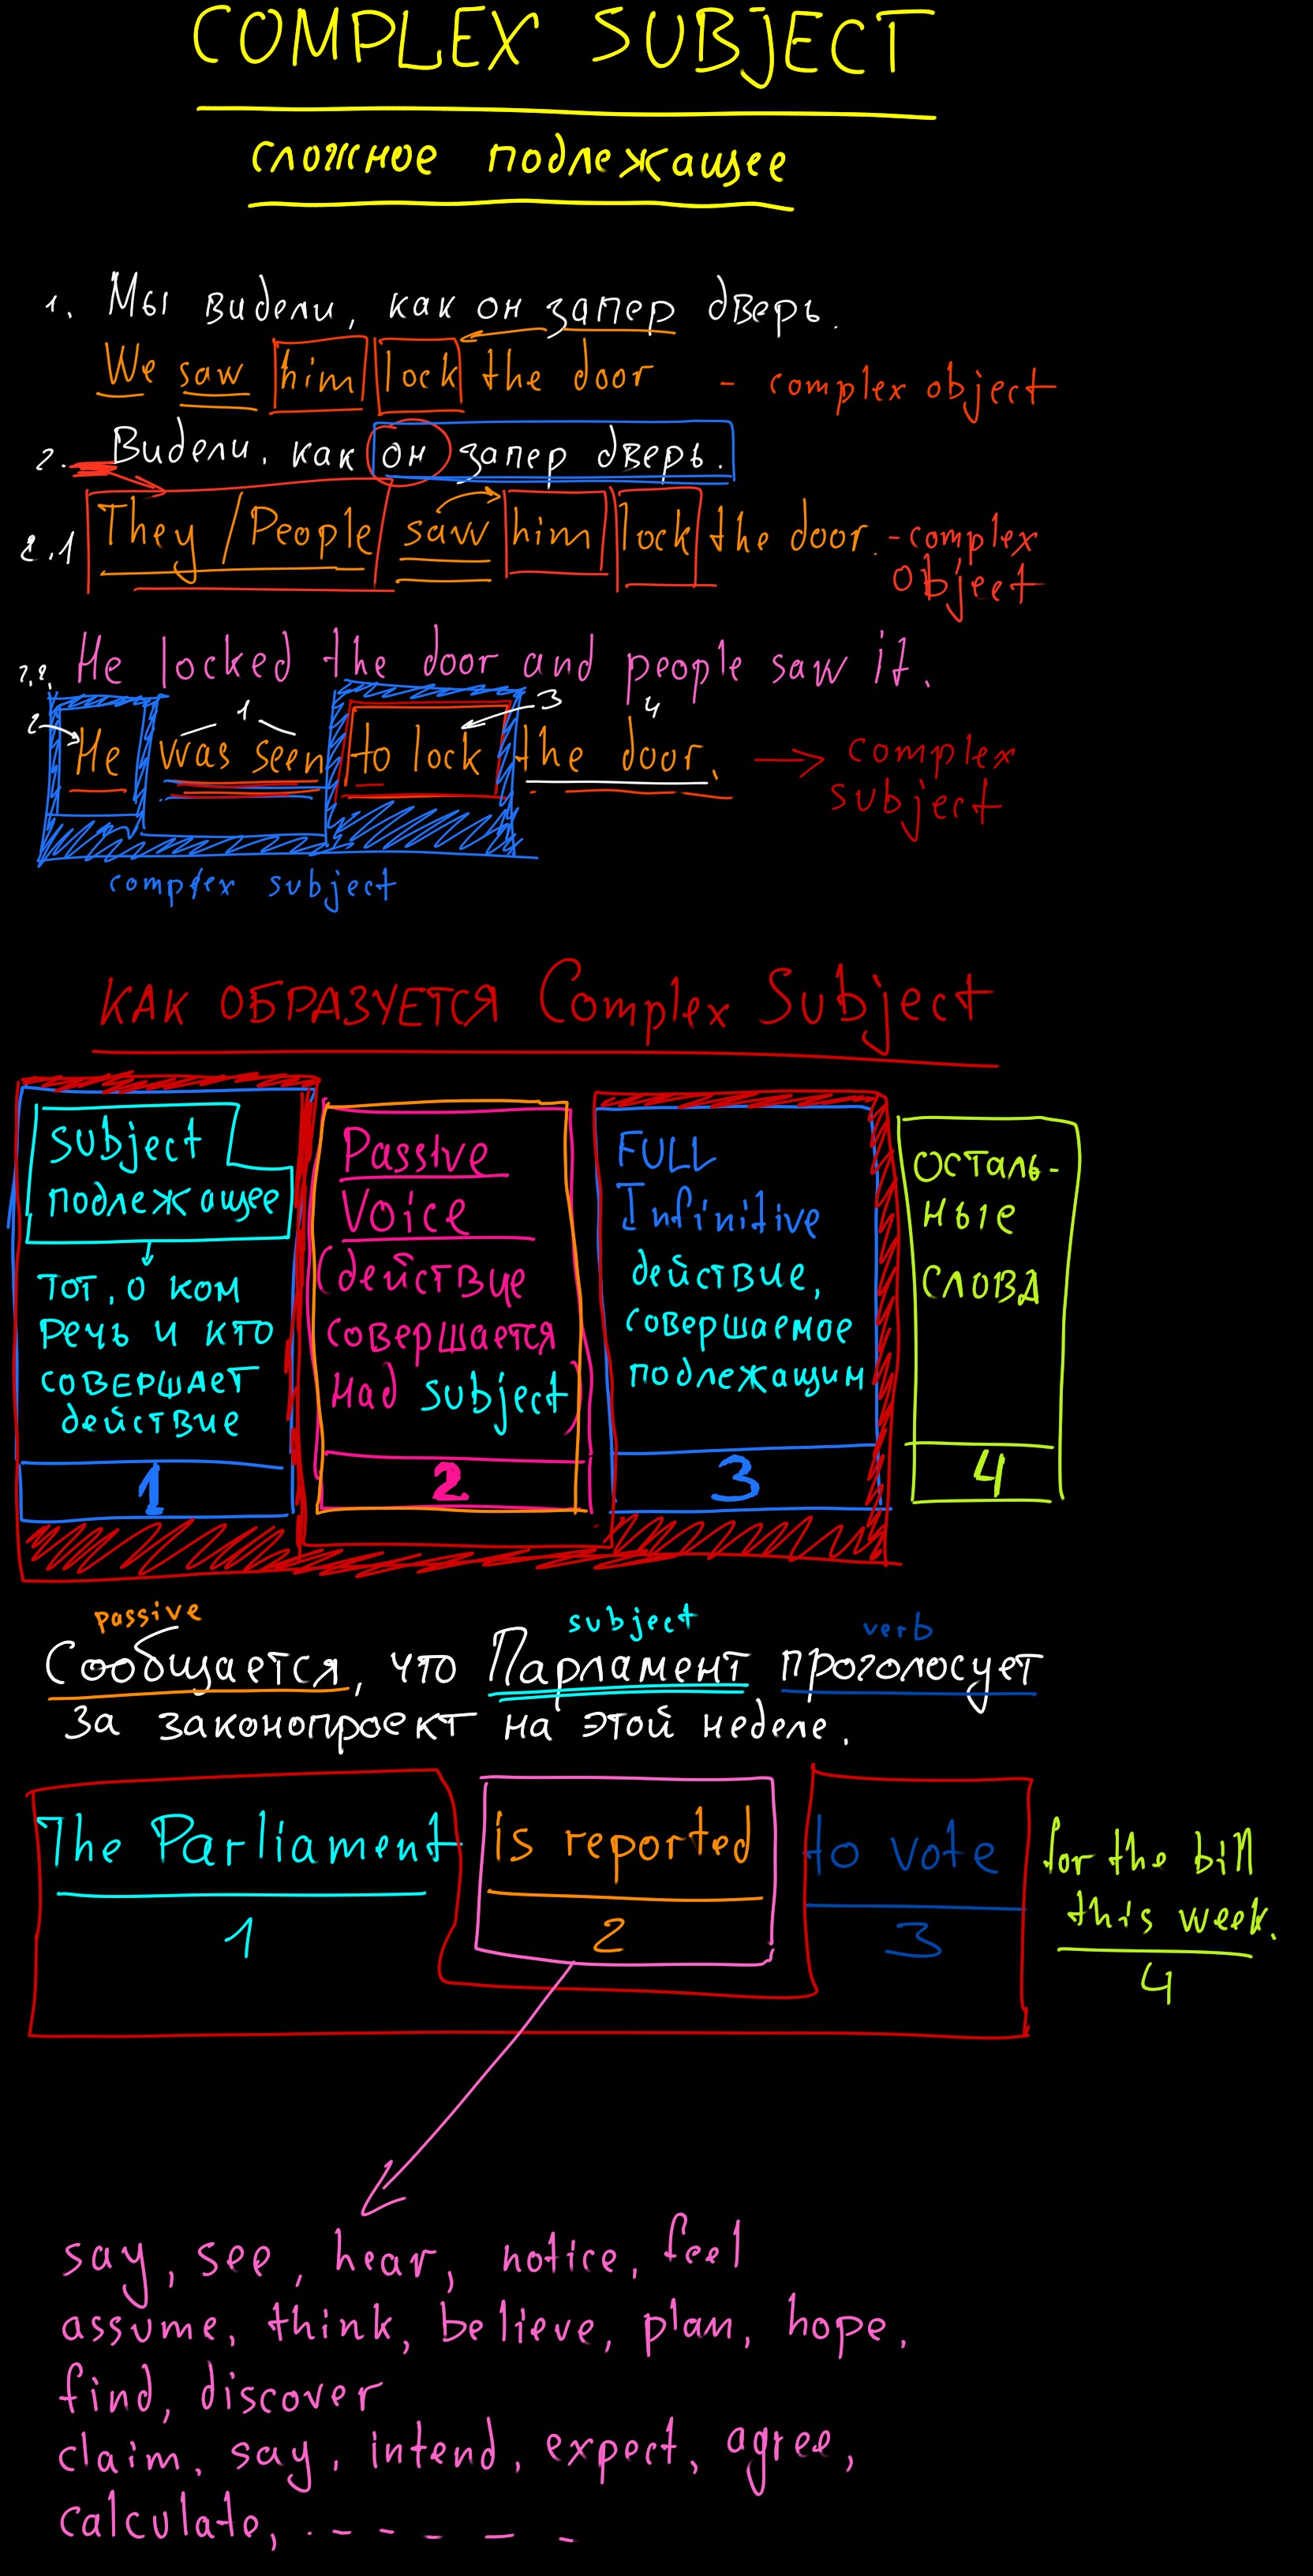 COMPLEX SUBJECT
сложное подлежащее
1. Мы видели, как он запер дверь.
We saw him lock the door - complex object
2. Видели, как он запер дверь.
2.1 They / People saw him lock the door. - complex
object
2.2. He locked the door and people saw it.
2 1 3 4
He was seen to lock the door. → complex
subject
complex subject
КАК ОБРАЗУЕТСЯ Complex Subject
subject
подлежащее
тот, о ком
речь и кто
совершает
действие
1
Passive
Voice
(действие
совершается
над subject)
2
FULL
Infinitive
действие,
совершаемое
подлежащим
3
осталь-
ные
слова
4
passive subject verb
Сообщается, что Парламент проголосует
за законопроект на этой неделе.
The Parliament is reported to vote for the bill
this week.
1 2 3 4
say, see, hear, notice, feel
assume, think, believe, plan, hope,
find, discover
claim, say, intend, expect, agree,
calculate, . - - - - -